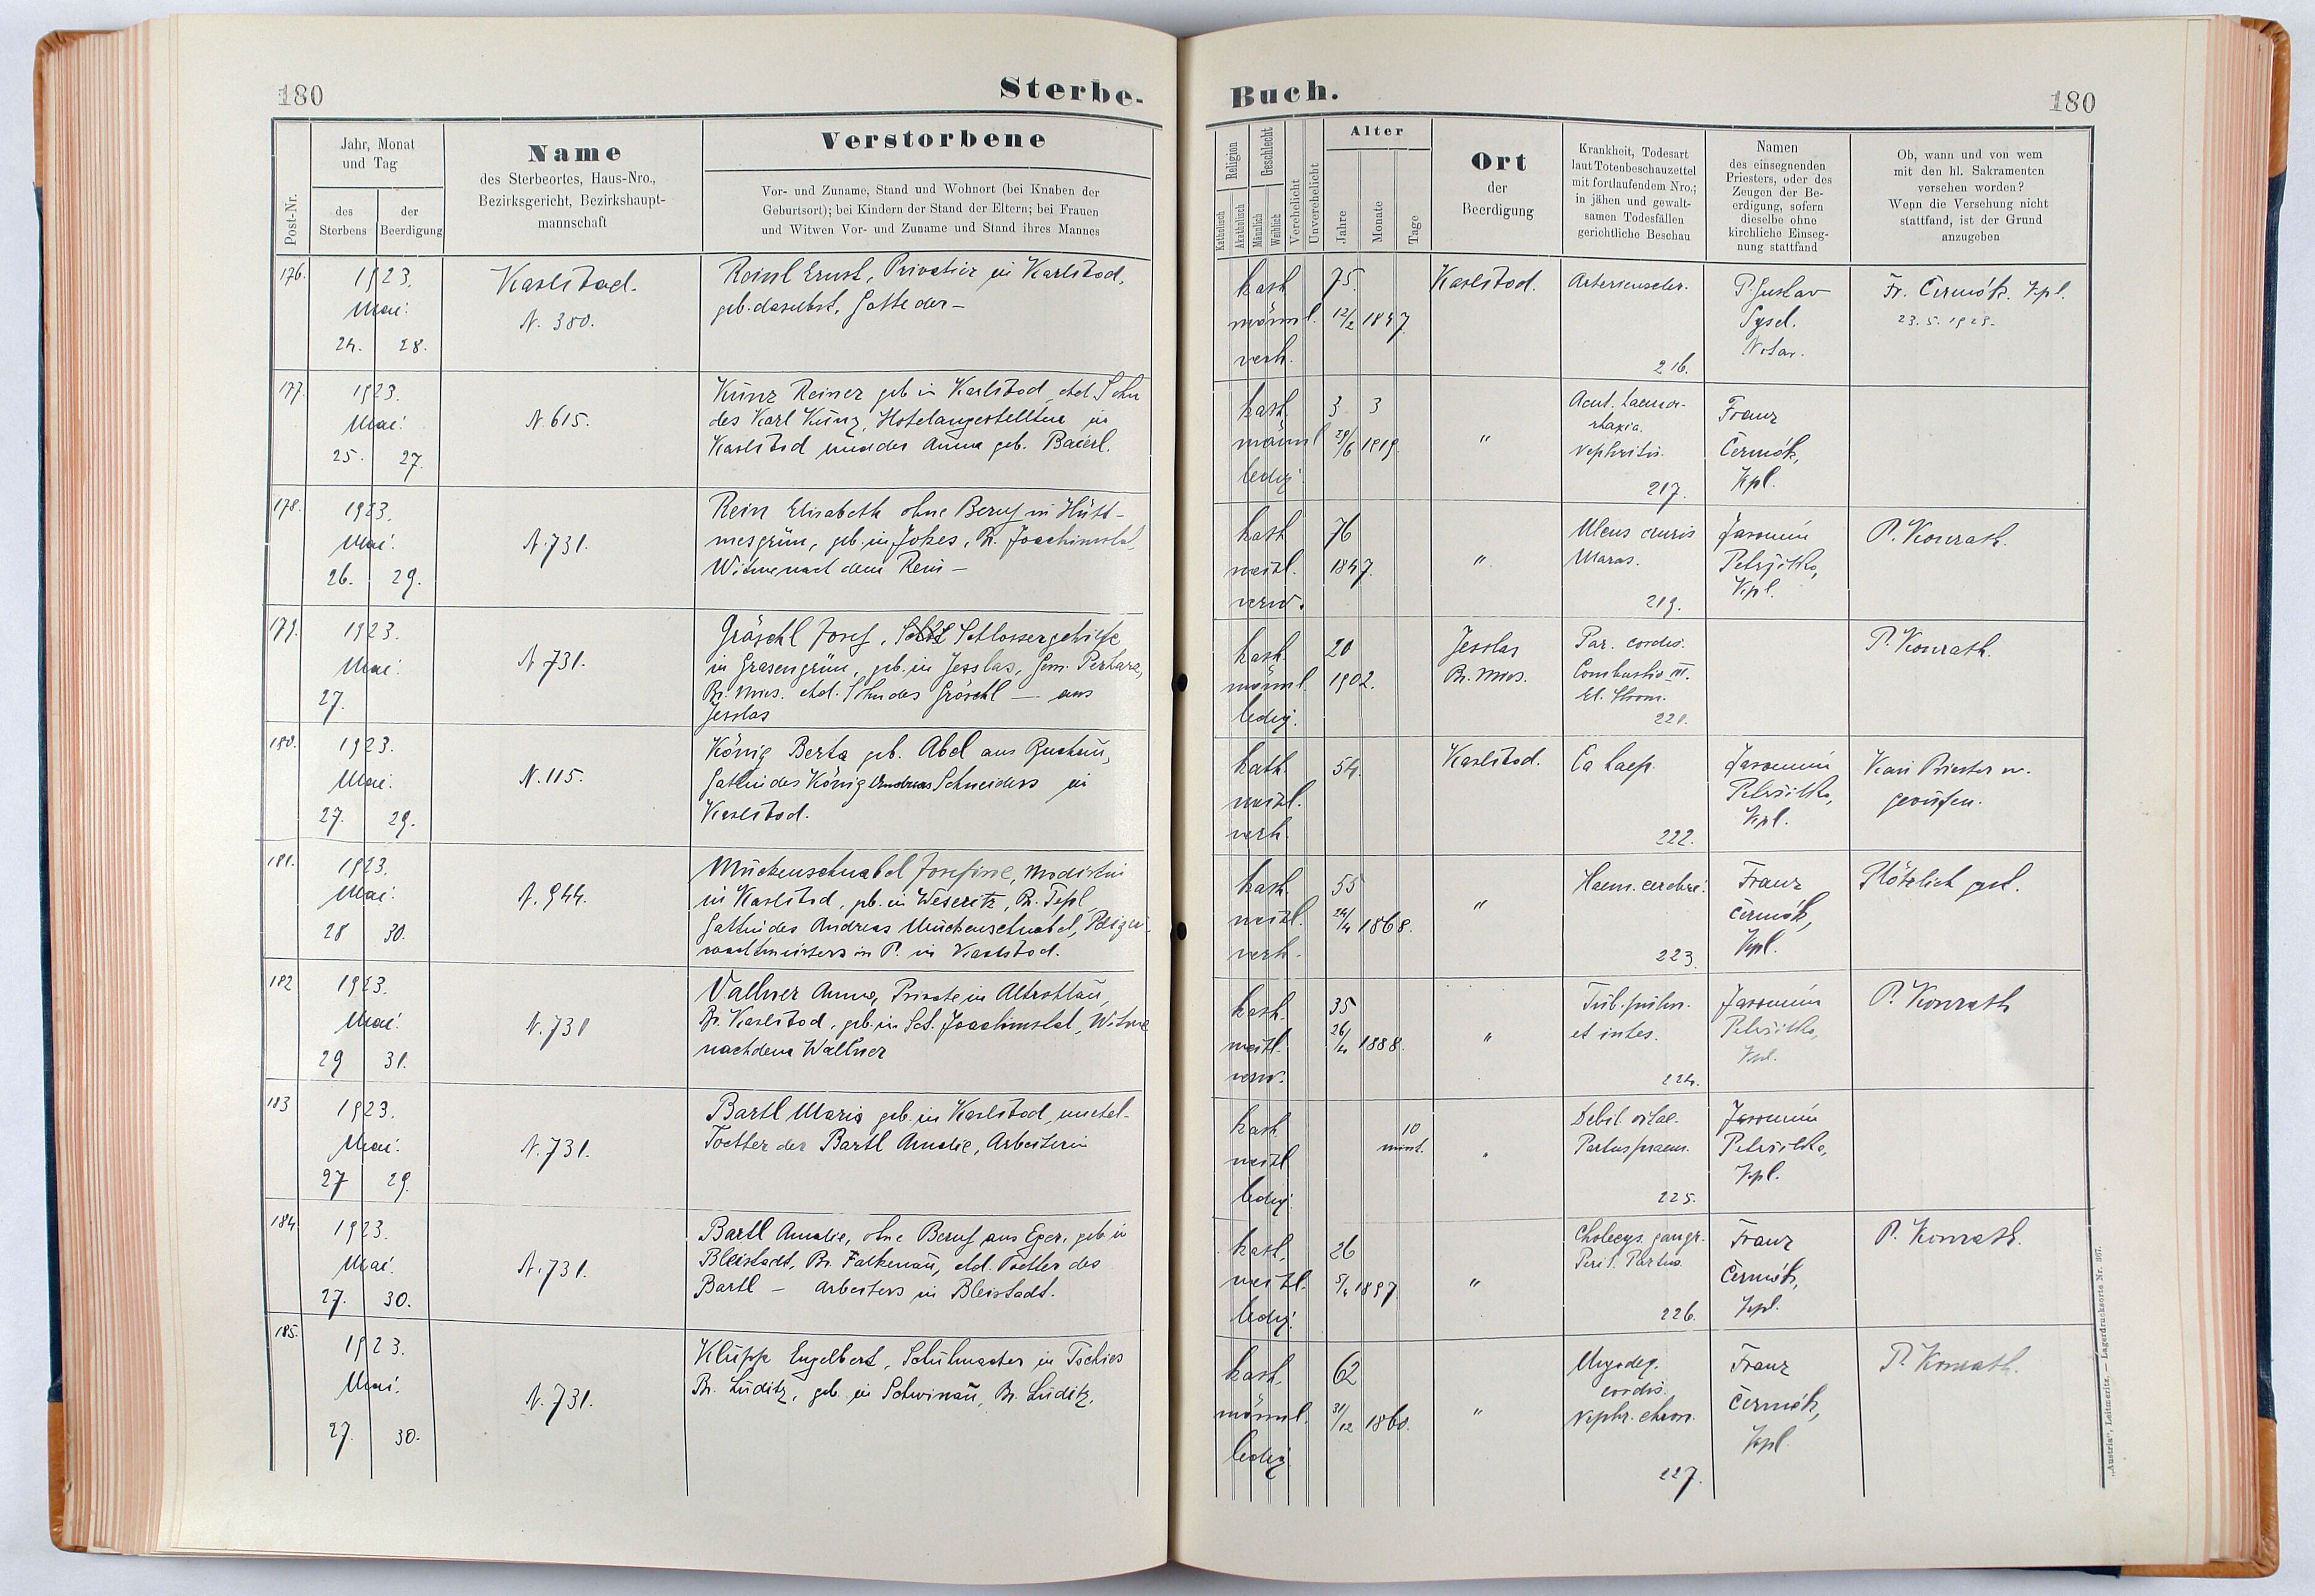 180
Sterbe-
Post-Nr.
Jahr, Monat
und Tag
des
Sterbens
der
Beerdigung
Name
des Sterbeortes, Haus-Nro.,
Bezirksgericht, Bezirkshaupt-
mannschaft
Verstorbene
Vor- und Zuname, Stand und Wohnort (bei Knaben der
Geburtsort); bei Kindern der Stand der Eltern; bei Frauen
und Witwen Vor- und Zuname und Stand ihres Mannes
176.
1923.
Mai.
24. 28.
Karlsbad.
N. 380.
Ernst, Privatier in Karlsbad,
geb. daselbst, Gatte der –
177.
1923.
Mai.
25. 27.
N. 615.
Kunz Reiner geb in Karlsbad, ehel. Sohn
des Karl Kunz, Hotelangestellten in
Karlsbad und der Anna geb. Baierl.
178.
1923.
Mai.
26. 29.
N. 731.
Rein Elisabeth ohne Beruf in Hütt-
mesgrün, geb. in Jokes, Br. Joachimstal,
Witwe nach dem Rein –
179.
1923.
Mai.
27.
N. 731.
Gröschl Josef, Schlossergehilfe
in Grasengrün, geb. in Jesslas, Gem.
Br. Mies. ehel. Sohn des Gröschl – aus
Jesslas
180.
1923.
Mai.
27. 29.
N. 115.
König Berta geb. Abel aus Buchau,
Gattin des König Andreas Schneiders in
Karlsbad.
181.
1923.
Mai.
28 30.
N. 944.
Muckenschnabel Josefine, Modistin
in Karlsbad, geb. in Weseritz, Br. Tepl,
Gattin des Andreas Muckenschnabel,
wachtmeisters in P. in Karlsbad.
182
1923.
Mai.
29 31.
N. 731
Vallner Anna, Private in Altrohlau,
Br. Karlsbad, geb. in Sct. Joachimstal, Witwe
nach dem Wallner
183
1923.
Mai.
27 29.
N. 731.
Bartl Maria geb. in Karlsbad, unehel.
Tochter der Bartl Amalie, Arbeiterin
184.
1923.
Mai.
27. 30.
N. 731.
Bartl Amalie, ohne Beruf aus Eger, geb. in
Bleistadt, Br. Falkenau, ehel. Tochter des
Bartl – Arbeiters in Bleistadt.
185.
1923.
Mai.
27. 30.
N. 731.
Klupp Engelbert, Schuhmacher in Tschies
Br. Luditz, geb. in Schwinau, Br. Luditz.
Buch.
180
Religion
Katholisch
Akatholisch
Geschlecht
Männlich
Weiblich
Verehelicht
Unverehelicht
Alter
Jahre
Monate
Tage
Ort
der
Beerdigung
Krankheit, Todesart
laut Totenbeschauzettel
mit fortlaufendem Nro.;
in jähen und gewalt-
samen Todesfällen
gerichtliche Beschau
Namen
des einsegnenden
Priesters, oder des
Zeugen der Be-
erdigung, sofern
dieselbe ohne
kirchliche Einseg-
nung stattfand
Ob, wann und von wem
mit den hl. Sakramenten
versehen worden?
Wenn die Versehung nicht
stattfand, ist der Grund
anzugeben
kath.
männl.
verh.
75.
12/2 1847
Karlsbad.
Arterienscler.
216.
P. Gustav
Sysel.
Notar.
Fr. Čermák. Kpl.
23. 5. 1923.
kath.
männl
ledig.
3 3
29/6 1919.
"
Acut. haemor-
rhagia.
nephritis.
217.
Franz
Čermák,
Kpl.
kath
weibl.
verw.
76
1847.
"
Ulcus cruris
Maras.
219.
Jaromir
Petržilka,
Kpl.
P. Konrath.
kath.
männl.
ledig.
20
1902.
Jesslas
Br. Mies.
Par. cordis.
Combustio III.
El. Strom.
221.
P. Konrath.
kath.
weibl.
verh.
54.
Karlsbad.
Ca haep.
222.
Jaromir
Petržilka,
Kpl.
Kein Priester w.
gerufen.
kath.
weibl.
verh.
55
24/4 1868.
"
Haem. cerebri.
223.
Franz
Čermák,
Kpl.
Plötzlich gest.
kath.
weibl.
verw.
35
26/4 1888.
"
Tub. pulm.
et intes.
224.
Jaromir
Petržilka,
Kpl.
P. Konrath
kath.
weibl
ledig.
10
minut.
"
Debil. vitae.
Partus praem.
225.
Jaromir
Petržilka,
Kpl.
kath.
weibl.
ledig.
26
5/4 1897
"
Cholecys. gangr.
Perit. Partus
226.
Franz
Čermák,
Kpl.
P. Konrath.
kath.
männl.
ledig
62
31/12 1860.
"
Myodeg.
cordis.
Nephr. chron.
227.
Franz
Čermák,
Kpl.
P. Konrath.
„Austria“, Leitmeritz. — Lagerdrucksorte Nr. 367.